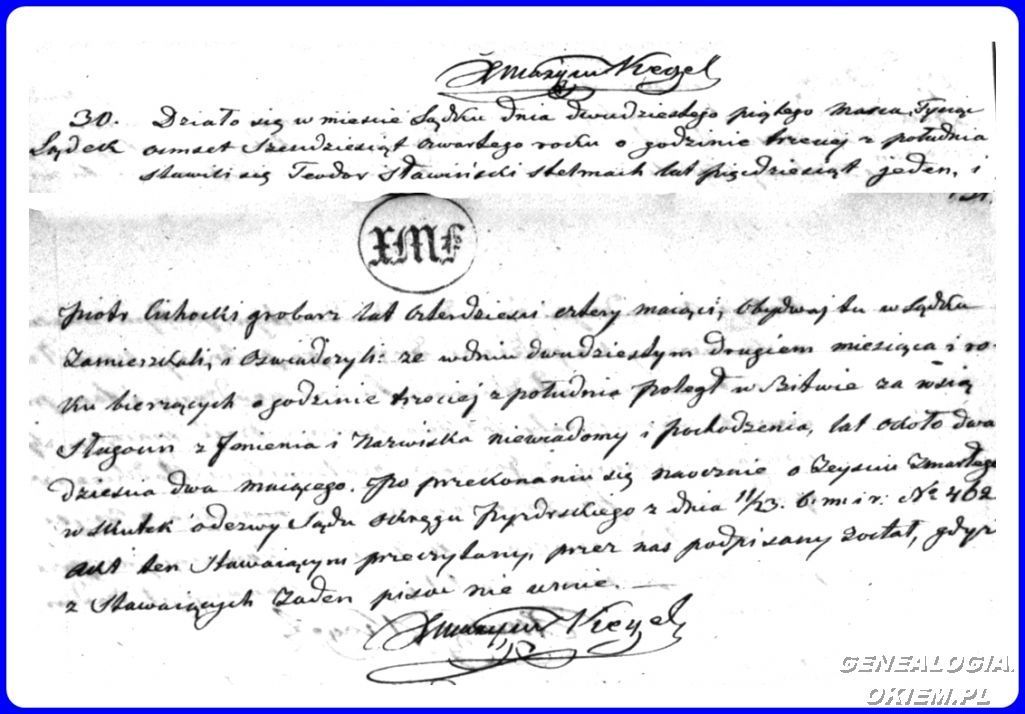 X Maxym Kregel
30. Działo się w mieście Lądku dnia dwudziestego piątego Marca, Tysiąc
Lądek osmset Szesdziesiąt czwartego rocku o godzinie trzeciej z południa
stawili się Teodor Sławiński stelmach lat pięćdziesiąt jeden, i
XMK
Piotr Cichocki grobarz lat czterdzieści cztery maiący, Obydwaj tu w Lądku
zamieszkali, i oswiadczyli: ze w dniu dwudziestym drugiem miesiąca i ro-
ku bierzących o godzinie trzeciej z południa poległ w Bitwie za wsią
Sługocin z Jmienia i Nazwiska niewiadomy i pochodzenia, lat około dwa
dziescia dwa maiącego. Po przekonaniu się naocznie o Zeysciu Zmarłego
w skutek odezwy Sądu okręgu Pyzdrskiego z dnia 11/23. b. m. i r: No 462
akt ten Stawaiącym przeczytany, przez nas podpisany został, gdyż
z Stawaiących żaden pisac nie umie.
X Maxym Kregel
GENEALOGIA.
OKIEM.PL